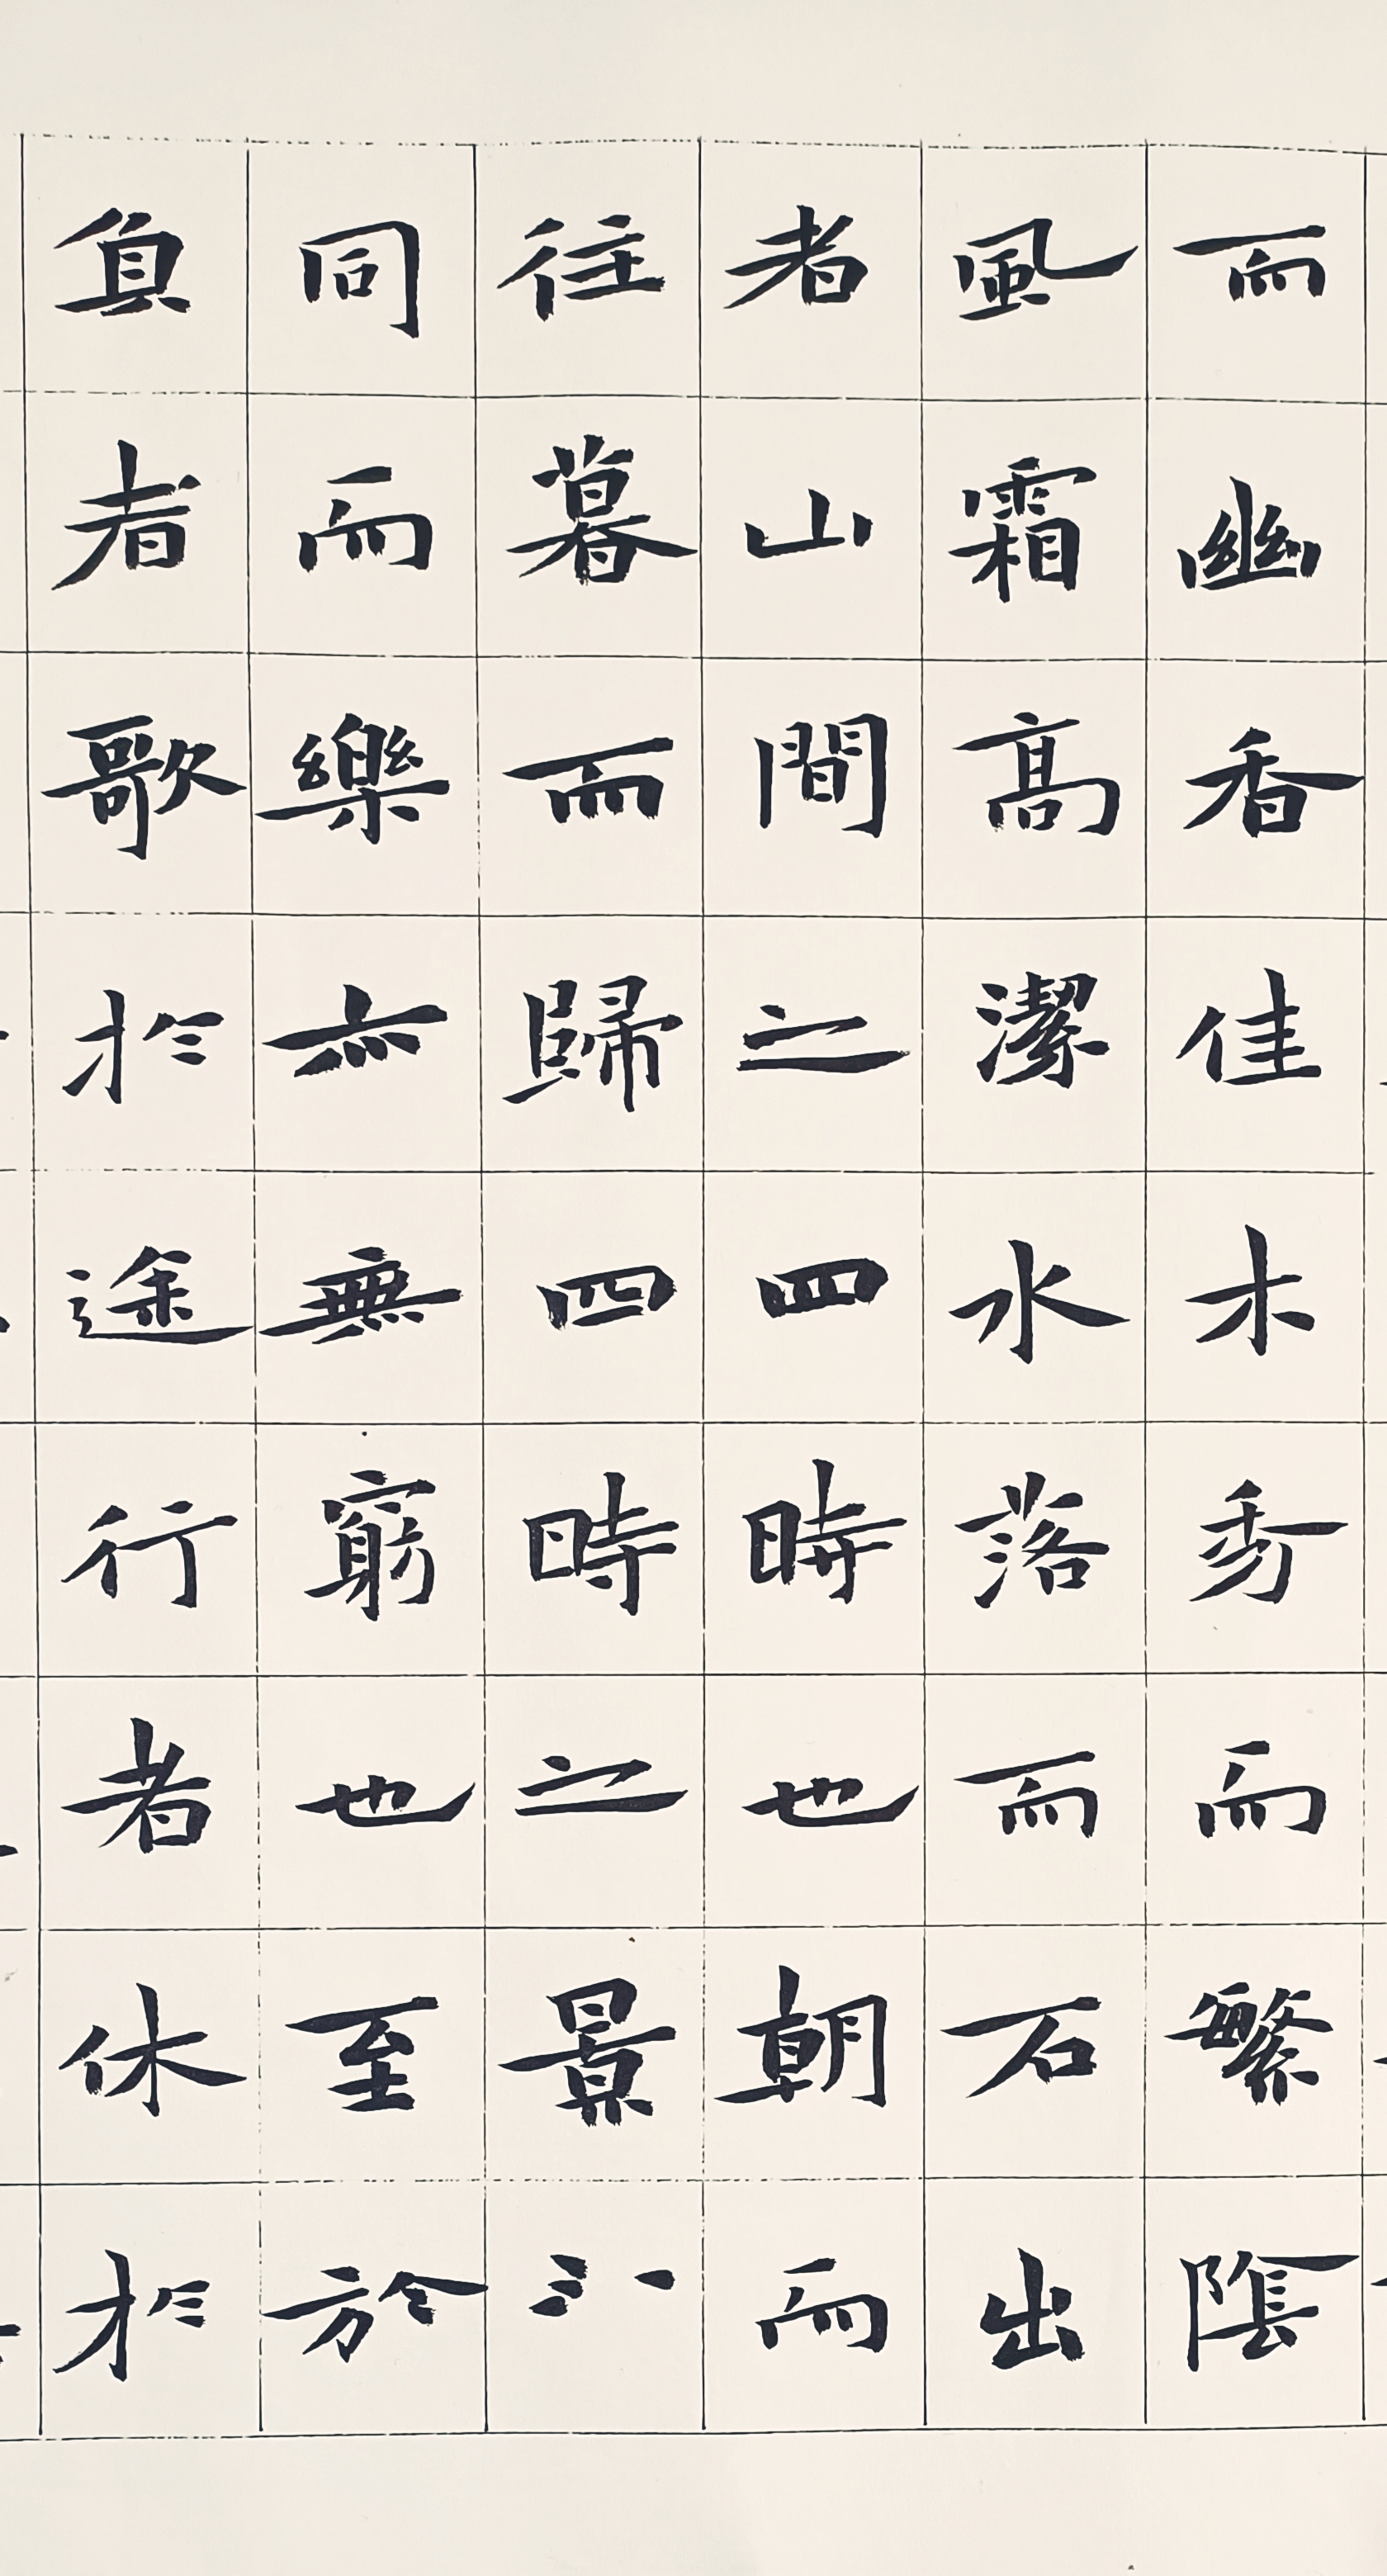 而幽香佳木秀而繁陰
風霜高潔水落而石出
者山間之四時也朝而
往暮而歸四時之景不
同而樂亦無窮也至於
負者歌於途行者休於